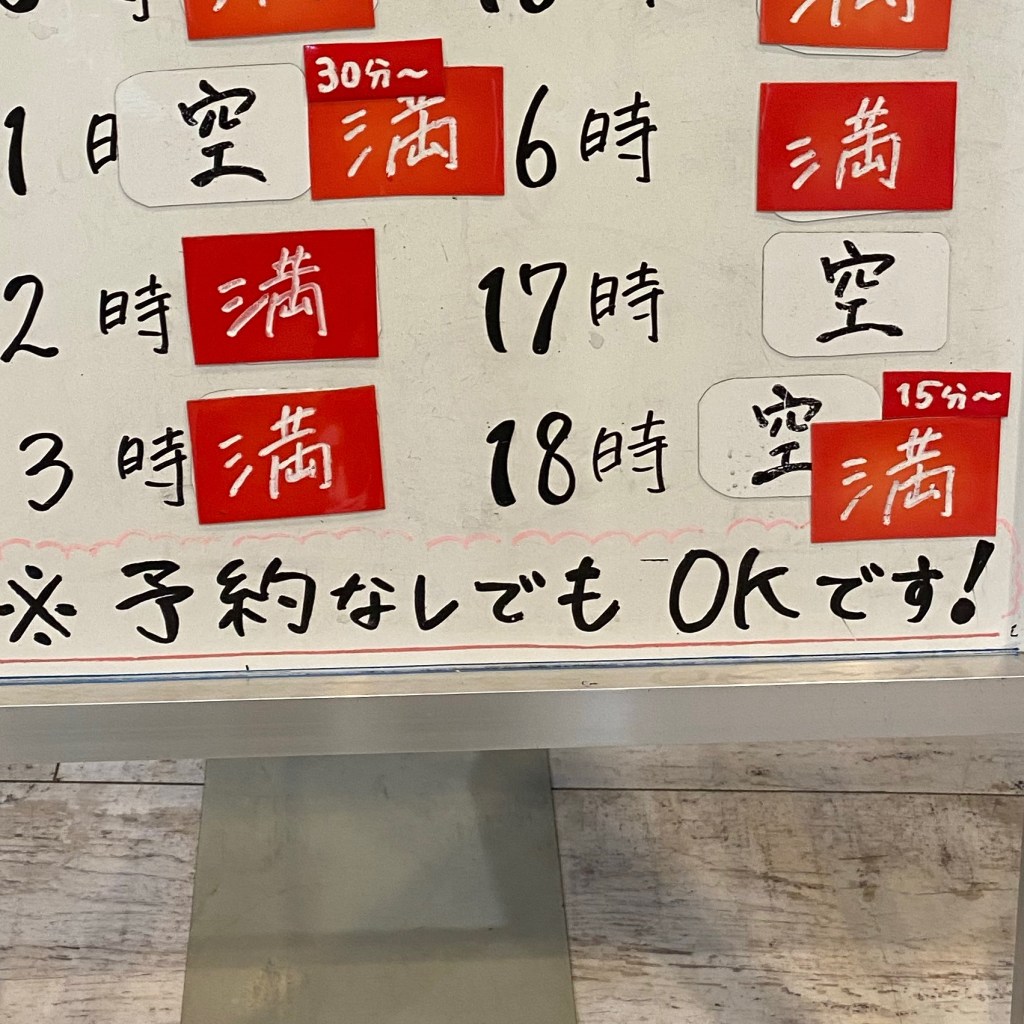 1時 空 30分~ 満
2時 満
3時 満
6時 満
17時 空
18時 空 15分~ 満
※予約なしでも OKです!